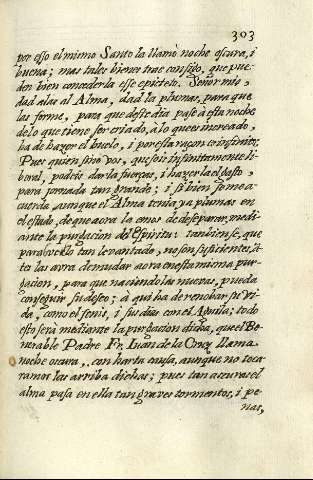 303
por esso el mismo Santo la llamò noche oscura, i
buena; mas tales bienes trae consigo, que pue-
den bien concederla esse epicteto. Señor mio,
dad alas al Alma, dad la plumas, para que
las forme, para que desde dia pase à esta noche
de lo que tiene ser criado, à lo que es increado,
ha de hazer el buelo, i por esta raçon es infinito;
Pues quien, sino vos, que sois infinitamente li-
beral, podeis dar la fuerças, i hazer la el gasto,
para jornada tan grande; i si bien se me a-
cuerda, aunque el Alma tenia ya plumas en
el estado, de que aora la emos de desaparecer, medi-
ante la purgacion del Espiritu: tambien se, que
para buelo tan levantado, no son suficientes,
te las avra de mudar aora en esta misma pur-
gacion, para que naciendo la nuevas, pueda
conseguir su deseo; à qui ha de renobar su vi-
da, como el fenis, i sus dias com el Aguila; todo
esto serà mediante la purgacion dicha, que el Be-
nerable Padre Fr. Iuan de la Cruz llama
noche oscura, con harta causa, aunque no toca-
ramos las arriba dichas; pues tan a escuras el
alma pasa en ella tan graves tormentos, i pe-
nas,